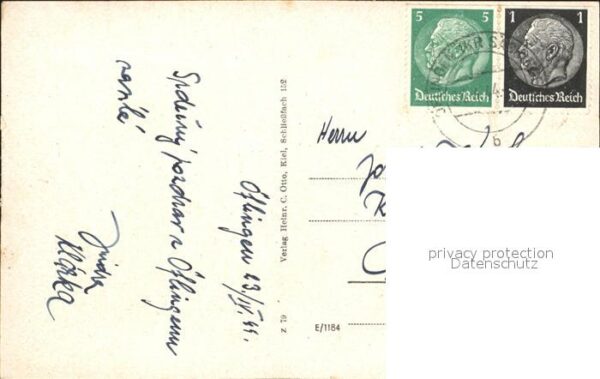 Öflingen 23/IV. 44.
Srdečný pozdrav z Öflingenu
zasílá
Jindra
Klárka
Verlag Heinr. C. Otto, Kiel, Schließfach 152
Z 79
E/1184
5 5
Deutsches Reich
1 1
Deutsches Reich
b
Herrn
privacy protection
Datenschutz